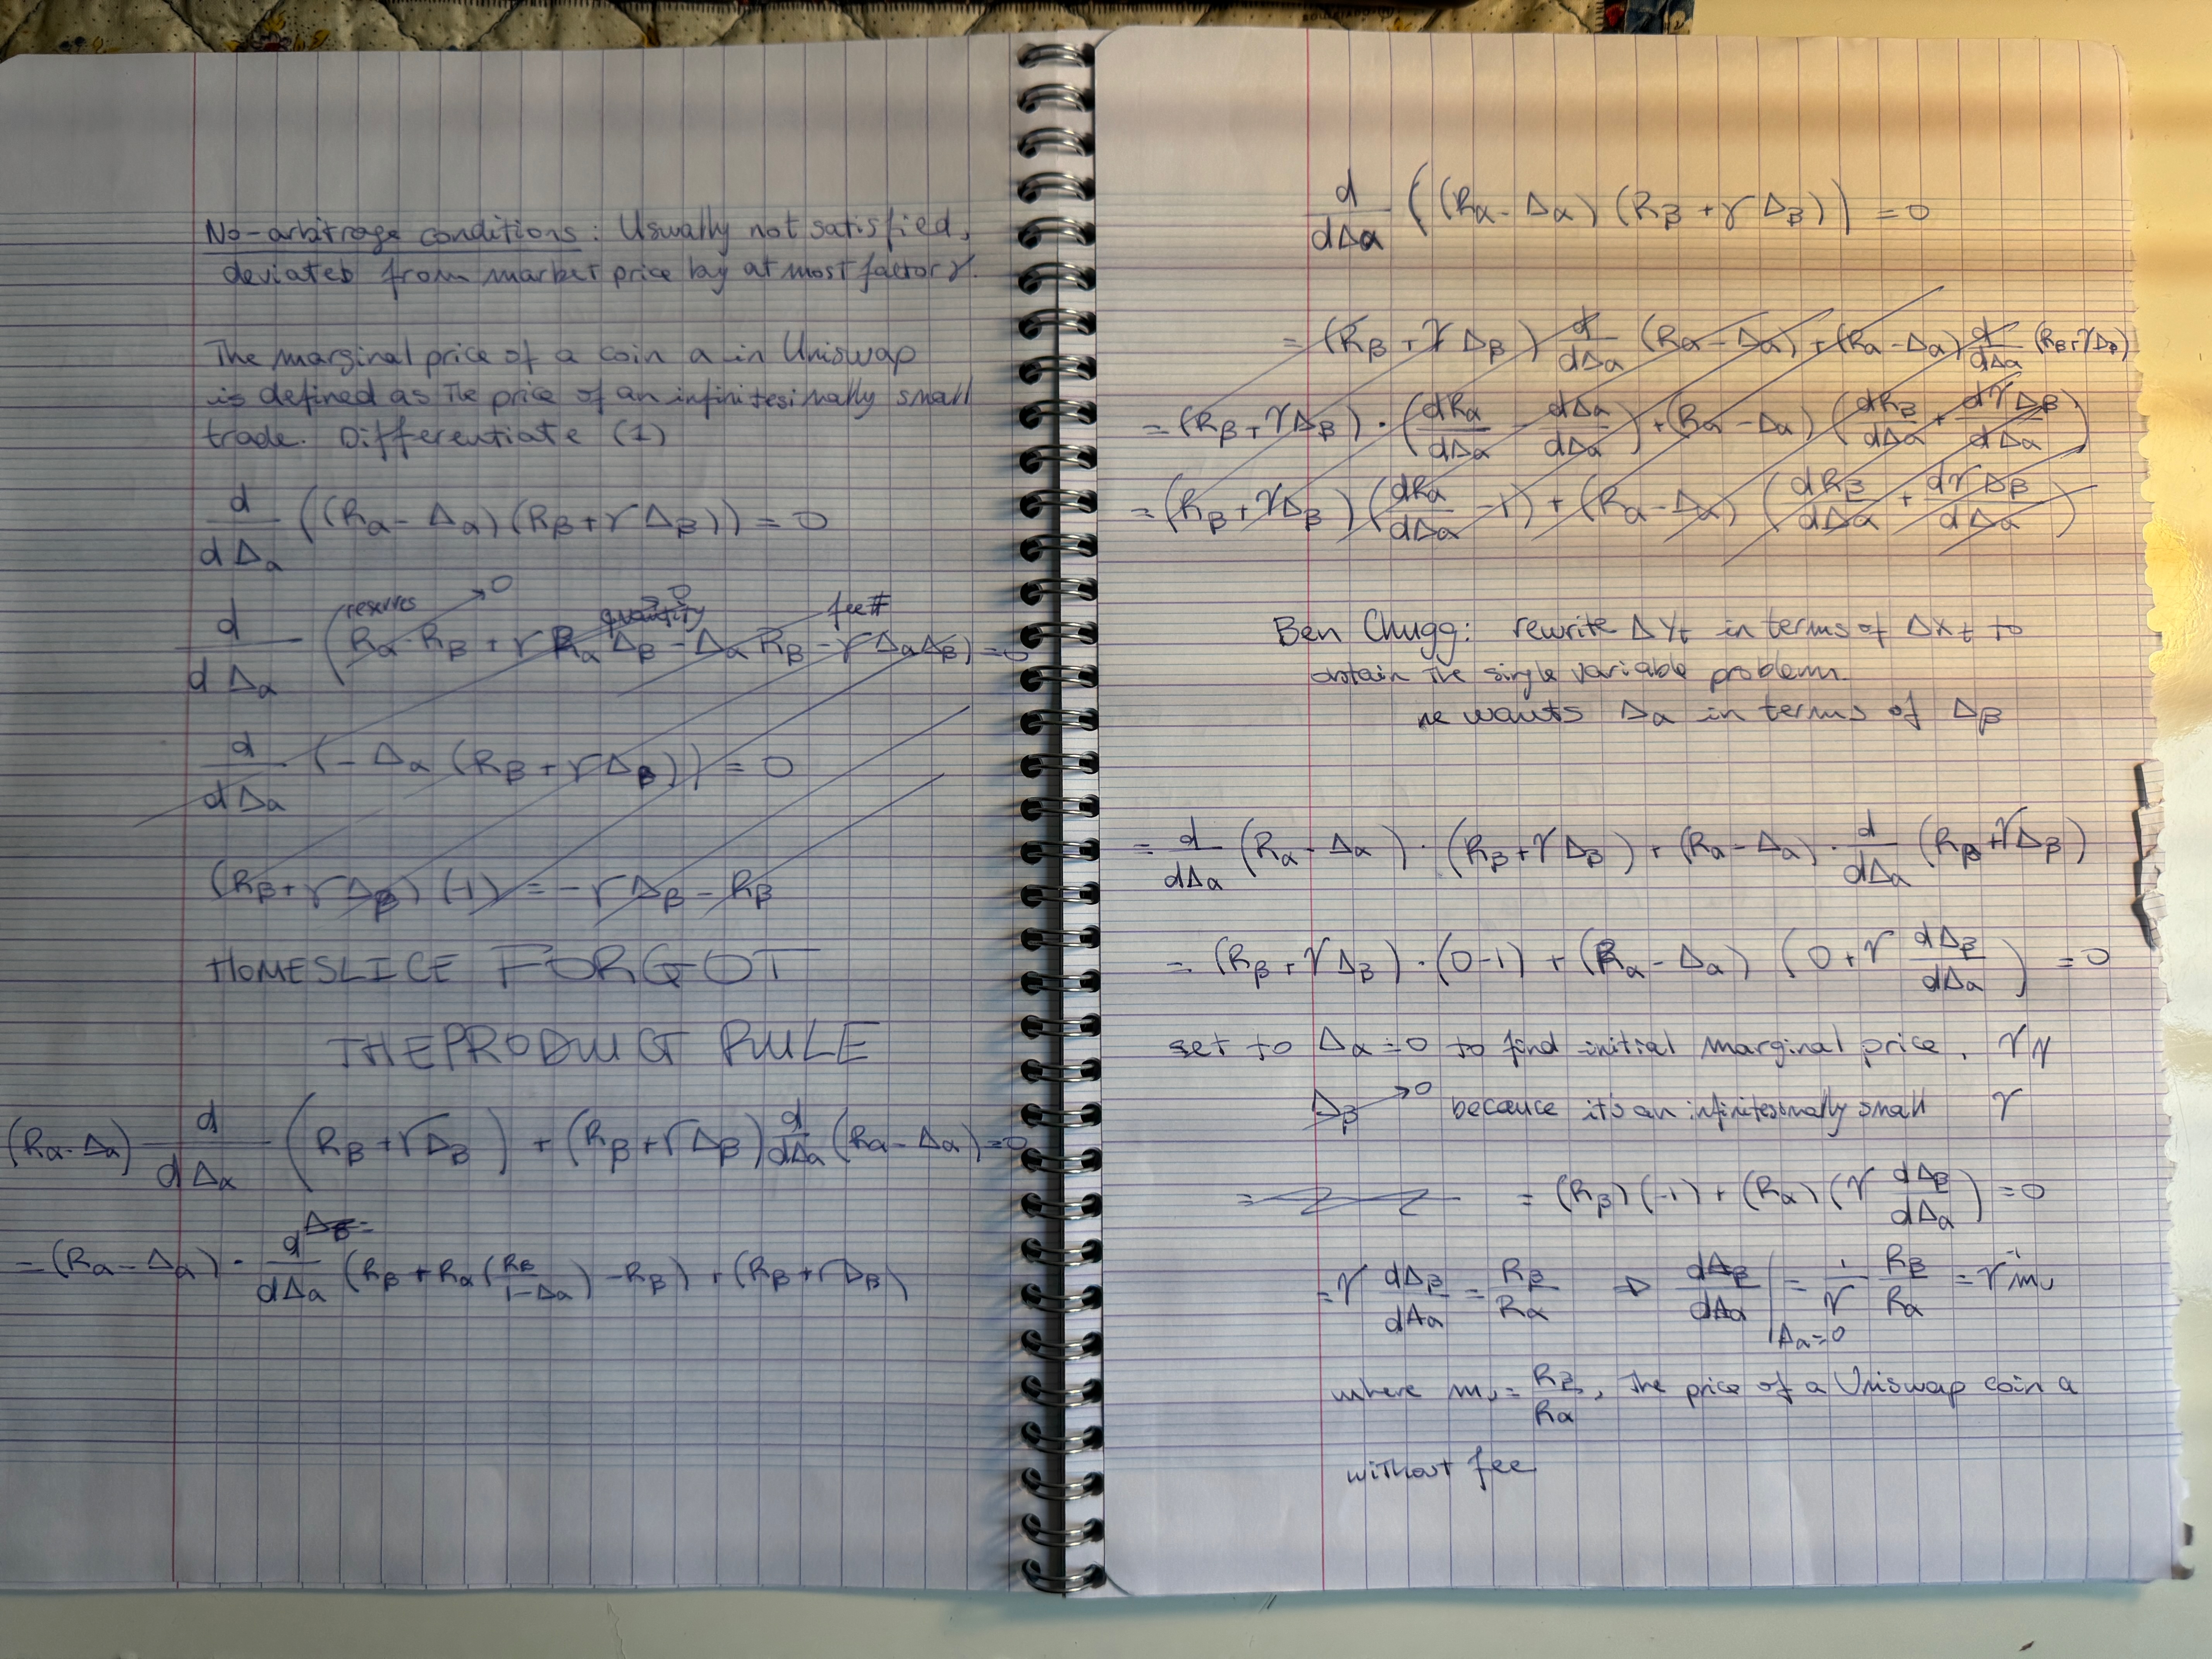 No-arbitrage conditions: Usually not satisfied,
deviates from market price by at most factor γ.
The marginal price of a coin a in Uniswap
is defined as the price of an infinitesimally small
trade. Differentiate (1)
d/dΔα ((Rα - Δα)(Rβ + γΔβ)) = 0
reserves → 0 quantity fee #
d/dΔα (Rα·Rβ + γRαΔβ - ΔαRβ - γΔαΔβ) = 0
d/dΔα (-Δα(Rβ + γΔβ)) = 0
(Rβ + γΔβ)(-1) = -γΔβ - Rβ
HOMESLICE FORGOT
THE PRODUCT RULE
(Rα - Δα) d/dΔα (Rβ + γΔβ) + (Rβ + γΔβ) d/dΔα (Rα - Δα) = 0
Δβ =
= (Rα - Δα) · d/dΔα (Rβ + Rα(Rβ/1-Δα) - Rβ) + (Rβ + γΔβ)
d/dΔα ((Rα - Δα)(Rβ + γΔβ)) = 0
= (Rβ + γΔβ) d/dΔα (Rα - Δα) + (Rα - Δα) d/dΔα (Rβ + γΔβ)
= (Rβ + γΔβ) · (dRα/dΔα - dΔα/dΔα) + (Rα - Δα)(dRβ/dΔα + dγΔβ/dΔα)
= (Rβ + γΔβ)(dRα/dΔα - 1) + (Rα - Δα)(dRβ/dΔα + dγΔβ/dΔα)
Ben Chugg: rewrite ΔYt in terms of ΔXt to
obtain the single variable problem.
he wants Δα in terms of Δβ
= d/dΔα (Rα - Δα) · (Rβ + γΔβ) + (Rα - Δα) · d/dΔα (Rβ + γΔβ)
= (Rβ + γΔβ) · (0-1) + (Rα - Δα) (0 + γ dΔβ/dΔα) = 0
set to Δα = 0 to find initial marginal price. γγ
Δβ → 0 because it's an infinitesimally small γ
= (Rβ)(-1) + (Rα)(γ dΔβ/dΔα) = 0
= γ dΔβ/dΔα = Rβ/Rα ⇒ dΔβ/dΔα |Δα=0 = 1/γ Rβ/Rα = γ⁻¹ mu
where mu = Rβ/Rα, the price of a Uniswap coin α
without fee